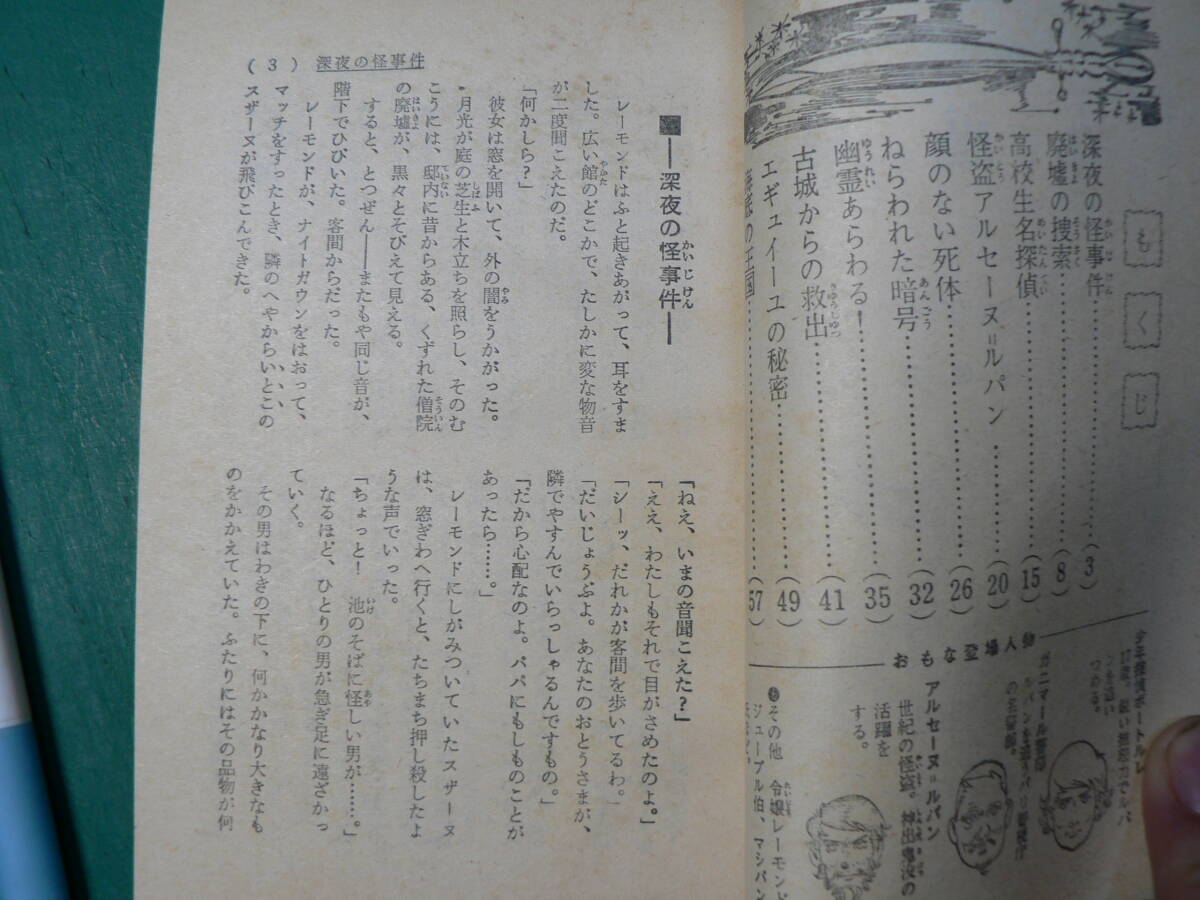 もくじ
深夜の怪事件……………(3)
廃墟の捜索……………(8)
高校生名探偵……………(15)
怪盗アルセーヌ=ルパン……(20)
顔のない死体……………(26)
ねらわれた暗号……………(32)
幽霊あらわる!……………(35)
古城からの救出……………(41)
エギュイーユの秘密……………(49)
(57)
おもな登場人物
アルセーヌ=ルパン
世紀の怪盗。
活躍を
する。
その他 令嬢レーモンド
ジェーブル伯、マシバン
(3) 深夜の怪事件
■――深夜の怪事件――
レーモンドはふと起きあがって、耳をすま
した。広い館のどこかで、たしかに変な物音
が二度聞こえたのだ。
「何かしら?」
彼女は窓を開いて、外の闇をうかがった。
月光が庭の芝生と木立ちを照らし、そのむ
こうには、邸内に昔からある、くずれた僧院
の廃墟が、黒々とそびえて見える。
すると、とつぜん――またもや同じ音が、
階下でひびいた。客間からだった。
レーモンドが、ナイトガウンをはおって、
マッチをすったとき、隣のへやからいとこの
スザーヌが飛びこんできた。
「ねえ、いまの音聞こえた?」
「ええ、わたしもそれで目がさめたのよ。」
「シーッ、だれかが客間を歩いてるわ。」
「だいじょうぶよ。あなたのおとうさまが、
隣でやすんでいらっしゃるんですもの。」
「だから心配なのよ。パパにもしものことが
あったら……。」
レーモンドにしがみついていたスザーヌ
は、窓ぎわへ行くと、たちまち押し殺したよ
うな声でいった。
「ちょっと! 池のそばに怪しい男が……。」
なるほど、ひとりの男が急ぎ足に遠ざかっ
ていく。
その男はわきの下に、何かかなり大きなも
のをかかえていた。ふたりにはその品物が何